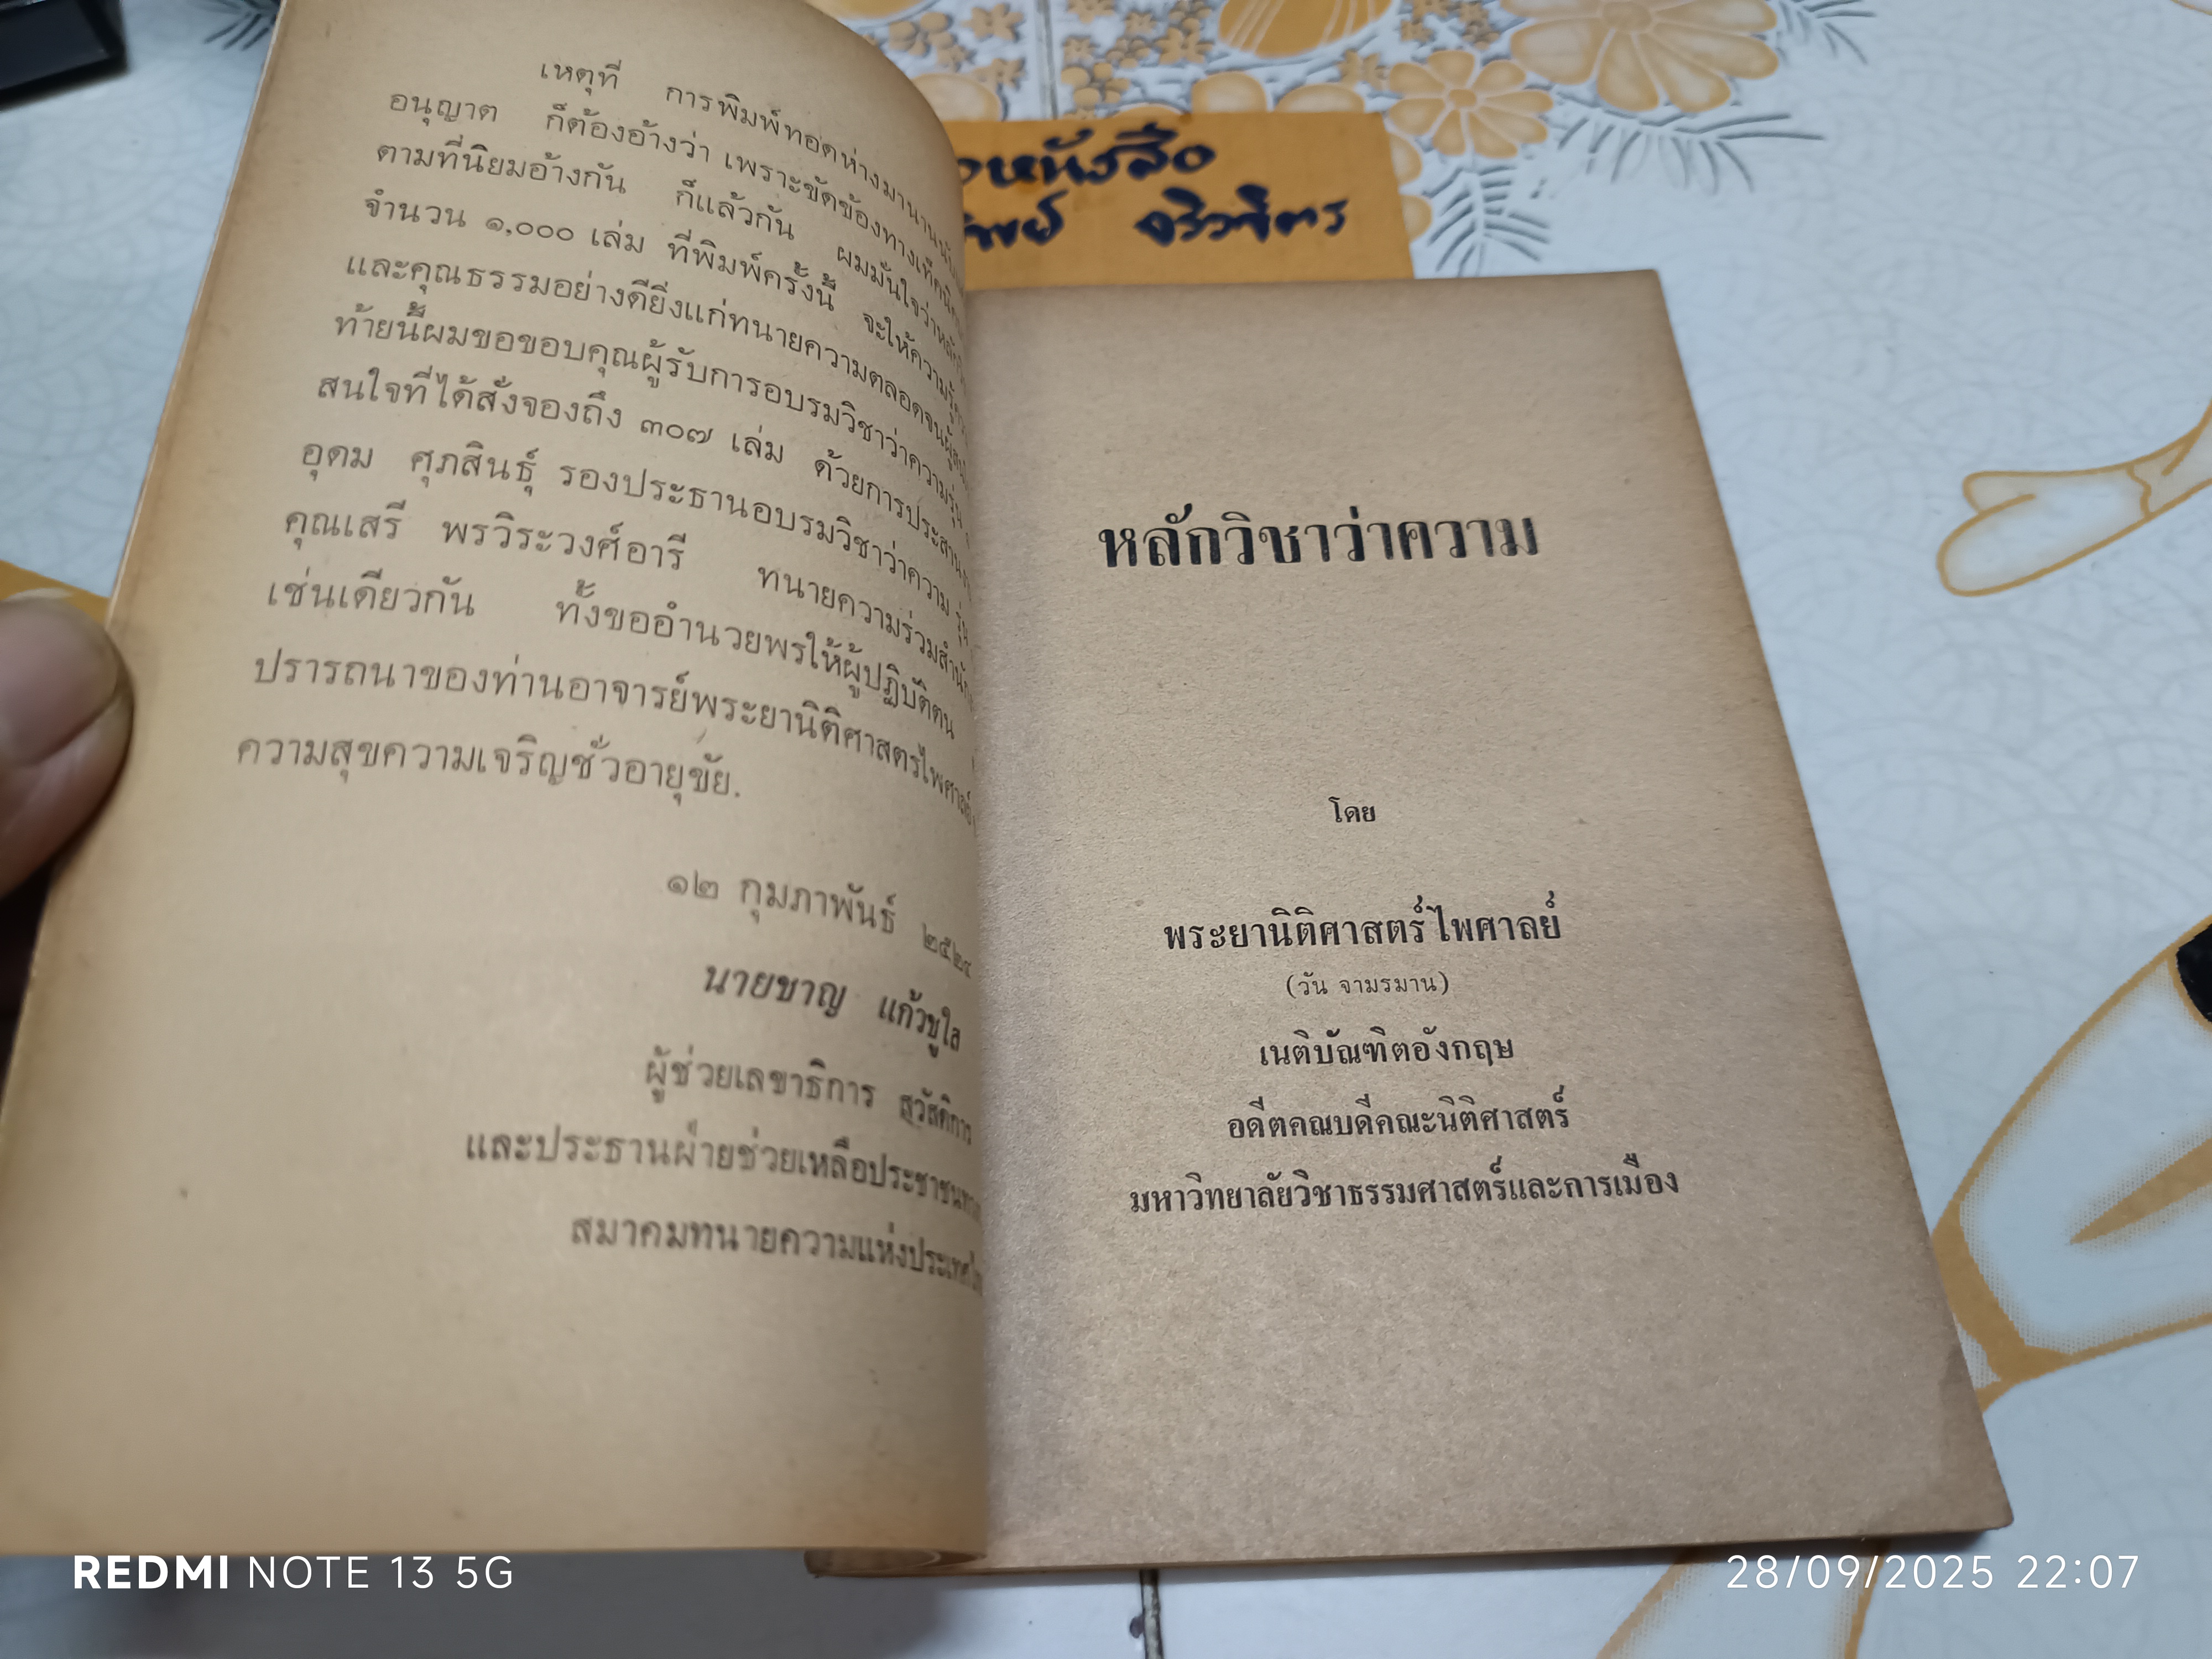 เหตุที่ การพิมพ์ทอดห่างมานาน
อนุญาต ก็ต้องอ้างว่า เพราะขัดข้องทางเท็คนิค
ตามที่นิยมอ้างกัน ก็แล้วกัน ผมมั่นใจว่า
จำนวน ๑,๐๐๐ เล่ม ที่พิมพ์ครั้งนี้ จะให้ความรู้
และคุณธรรมอย่างดียิ่งแก่ทนายความตลอดจน
ท้ายนี้ผมขอขอบคุณผู้รับการอบรมวิชาว่าความรุ่น
สนใจที่ได้สั่งจองถึง ๓๐๗ เล่ม ด้วยการประสาน
อุดม ศุภสินธุ์ รองประธานอบรมวิชาว่าความ รุ่น
คุณเสรี พรวิระวงศ์อารี ทนายความร่วมสำนัก
เช่นเดียวกัน ทั้งขออำนวยพรให้ผู้ปฏิบัติตน
ปรารถนาของท่านอาจารย์พระยานิติศาสตร์ไพศาลย์
ความสุขความเจริญชั่วอายุขัย.
๑๒ กุมภาพันธ์ ๒๕๒๔
นายชาญ แก้วชูใส
ผู้ช่วยเลขาธิการ สวัสดิการ
และประธานฝ่ายช่วยเหลือประชาชน
สมาคมทนายความแห่งประเทศ
หนังสือ
หลักวิชาว่าความ
โดย
พระยานิติศาสตร์ไพศาลย์
(วัน จามรมาน)
เนติบัณฑิตอังกฤษ
อดีตคณบดีคณะนิติศาสตร์
มหาวิทยาลัยวิชาธรรมศาสตร์และการเมือง
REDMI NOTE 13 5G
28/09/2025 22:07